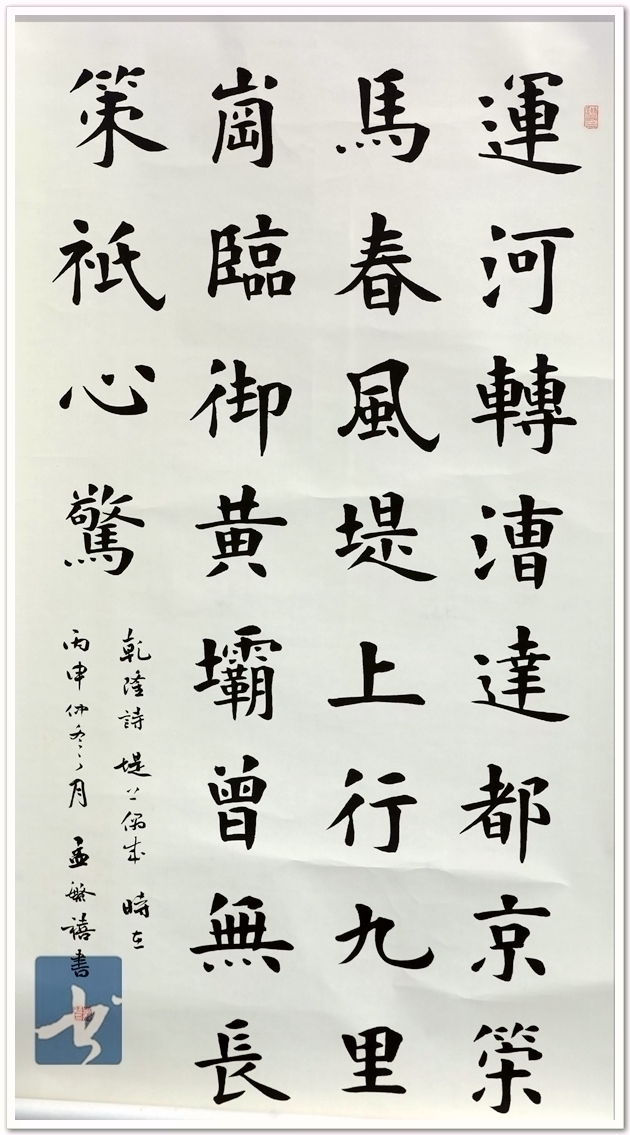 運河轉漕達都京策
馬春風堤上行九里
崗臨御黃壩曾無長
策祇心驚
乾隆詩堤上偶成 時在
丙申仲冬之月 孟繁禧書
书